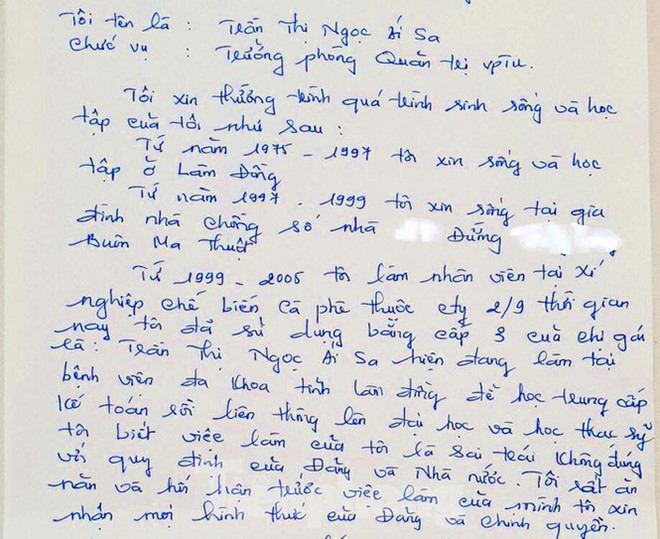 Tôi tên là : Trần Thị Ngọc Ái Sa
Chức vụ : Trưởng phòng Quản trị VPTU.
Tôi xin thưởng trình quá trình sinh sống và học
tập của tôi như sau :
Từ năm 1975 - 1997 tôi xin sống và học
tập ở Lâm Đồng
Từ năm 1997 - 1999 tôi xin sống tại gia
đình nhà chồng số nhà Dương
Buôn Ma Thuột
Từ 1999 - 2005 tôi làm nhân viên tại xí
nghiệp chế biến cà phê thuộc cty 2/9 thời gian
này tôi đã sử dụng bằng cấp 3 của chị gái
là : Trần Thị Ngọc Ái Sa hiện đang làm tại
bệnh viện đa khoa tỉnh Lâm Đồng để học trung cấp
kế toán rồi liên thông lên đại học và học thạc sỹ
tôi biết việc làm của tôi là sai trái không đúng
với quy định của Đảng và Nhà nước. Tôi rất ăn
năn và hối hận trước việc làm của mình tôi xin
nhận mọi hình thức của Đảng và chính quyền.